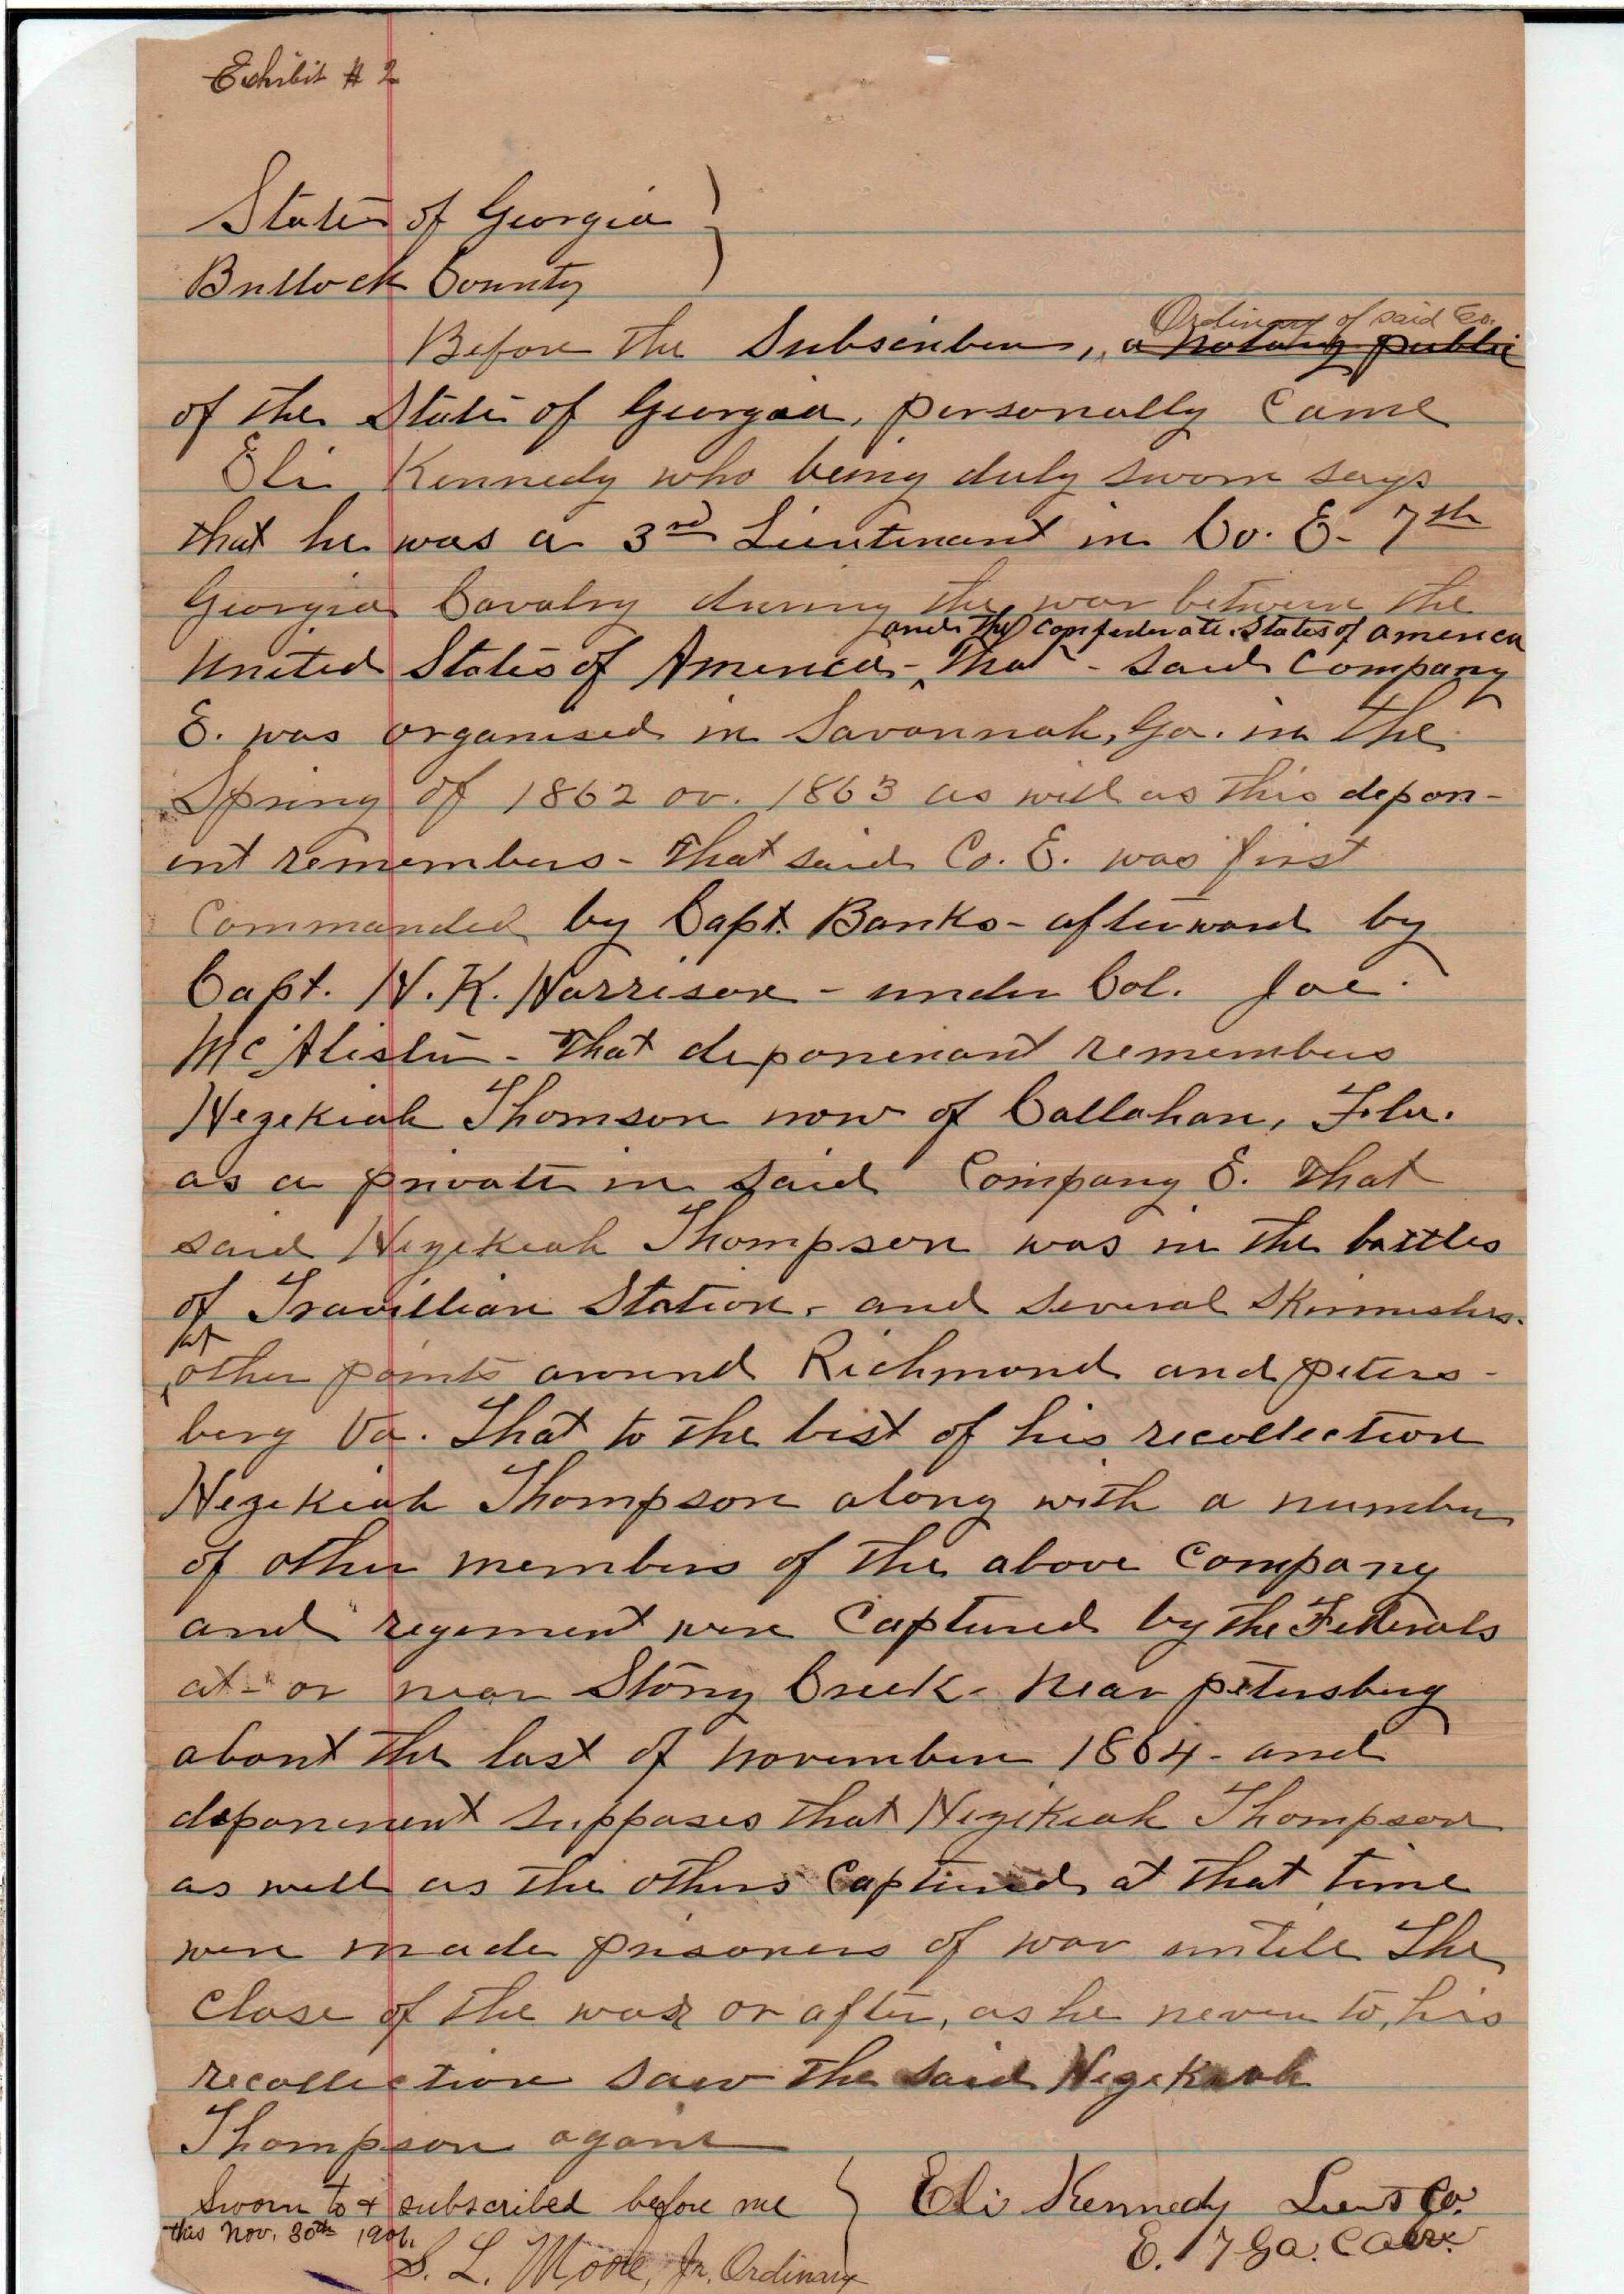 Exhibit # 2
State of Georgia
Bullock County
Ordinary of said Co.
Before the Subscriber, a notary public
of the State of Georgia, personally came
Eli Kennedy who being duly sworn says
that he was a 3rd Lieutenant in Co. E. 7th
Georgia Cavalry during the war between the
and the Confederate States of America
United States of America - That - said Company
E. was organised in Savannah, Ga. in the
Spring of 1862 or. 1863 as well as this depon-
ent remembers - That said Co. E. was first
Commanded by Capt. Banks - afterward by
Capt. H. K. Harrison - under Col. Joe.
McAlister - That deponenant remembers
Hezekiah Thomson now of Callahan, Fla.
as a private in said Company E. That
said Hezekiah Thompson was in the battles
of Travillian Station, and several skirmishes.
at
other points around Richmond and peters-
berg Va. That to the best of his recollection
Hezekiah Thompson along with a number
of other members of the above Company
and regement were Captured by the Federals
at - or near Stony Creek - near petersburg
about the last of november 1864 - and
deponenent supposes that Hezekiah Thompson
as well as the others Captured at that time
were made prisoners of war untill the
close of the war or after, as he never to, his
recollection saw the said Hezekiah
Thompson again
Sworn to & subscribed before me
this Nov. 30th 1906.
S. L. Moore, Jr. Ordinary
Eli Kennedy Lieut Co.
E. 7 Ga. Cav.